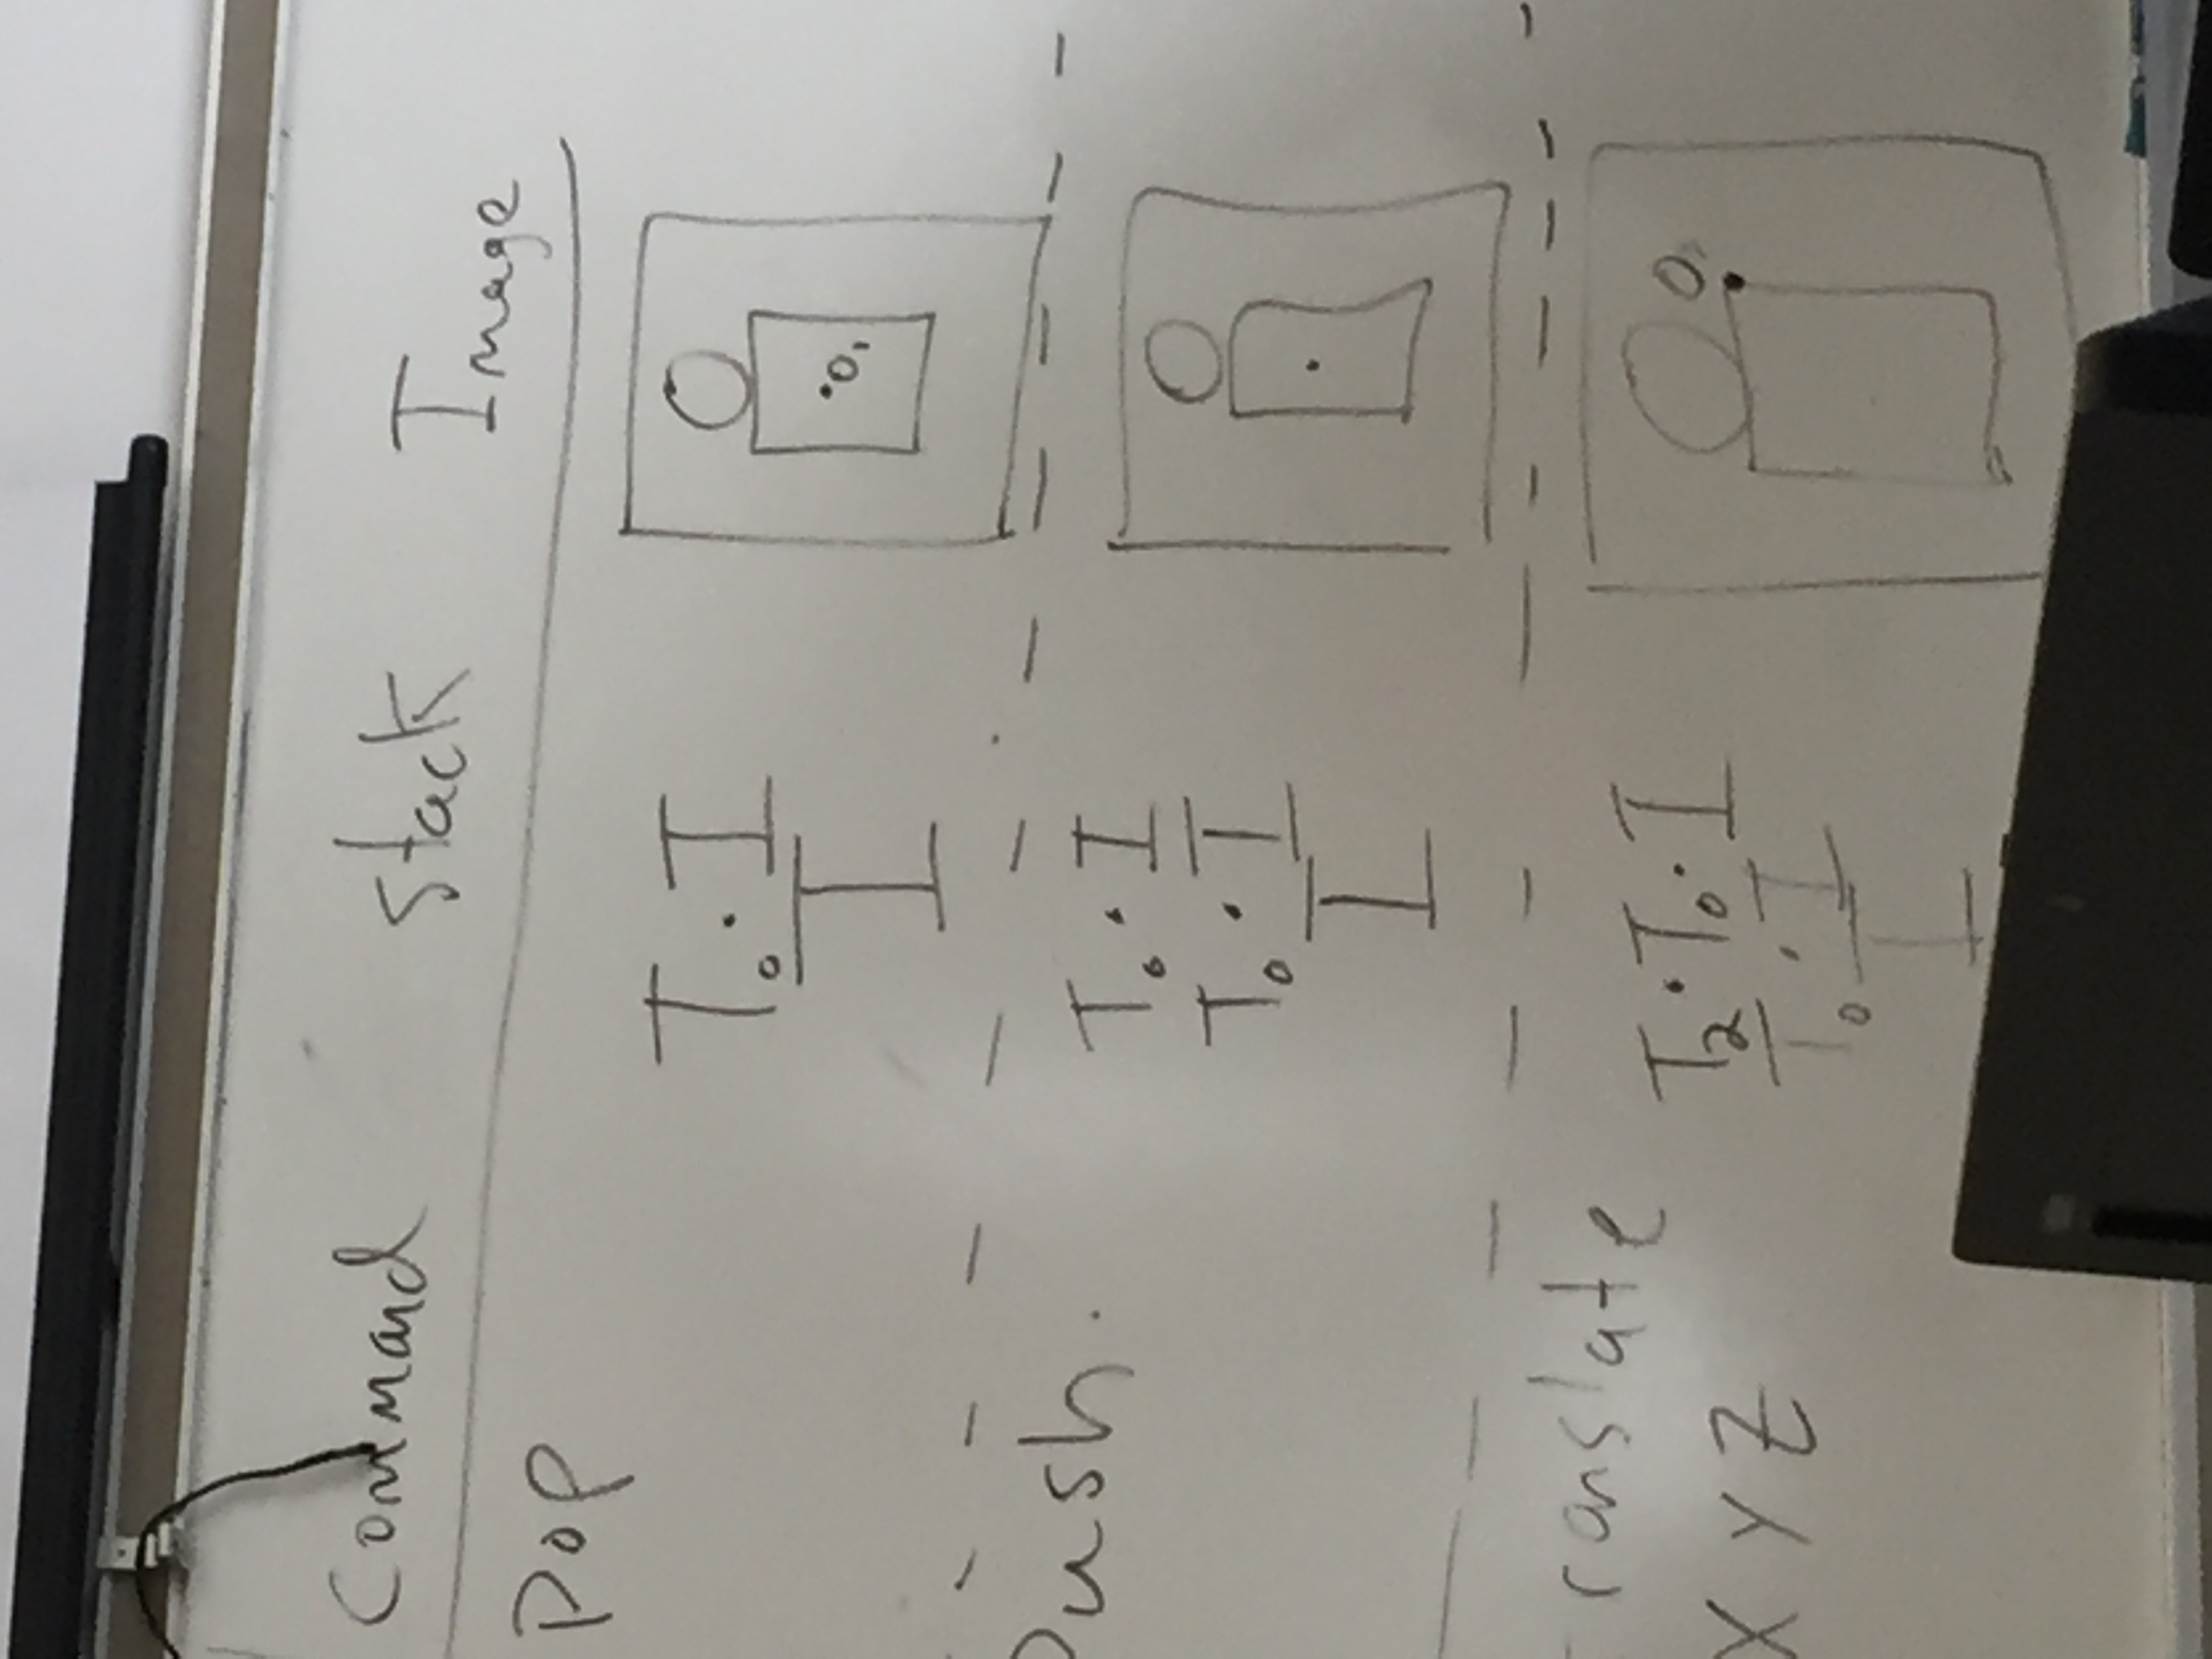 Command Stack Image
Pop
T₀ · I
I
O₁
Push.
T₀ · I
T₀ · I
I
translate
X Y Z
T₂ · T₀ · I
T₀ · I
I
O₁